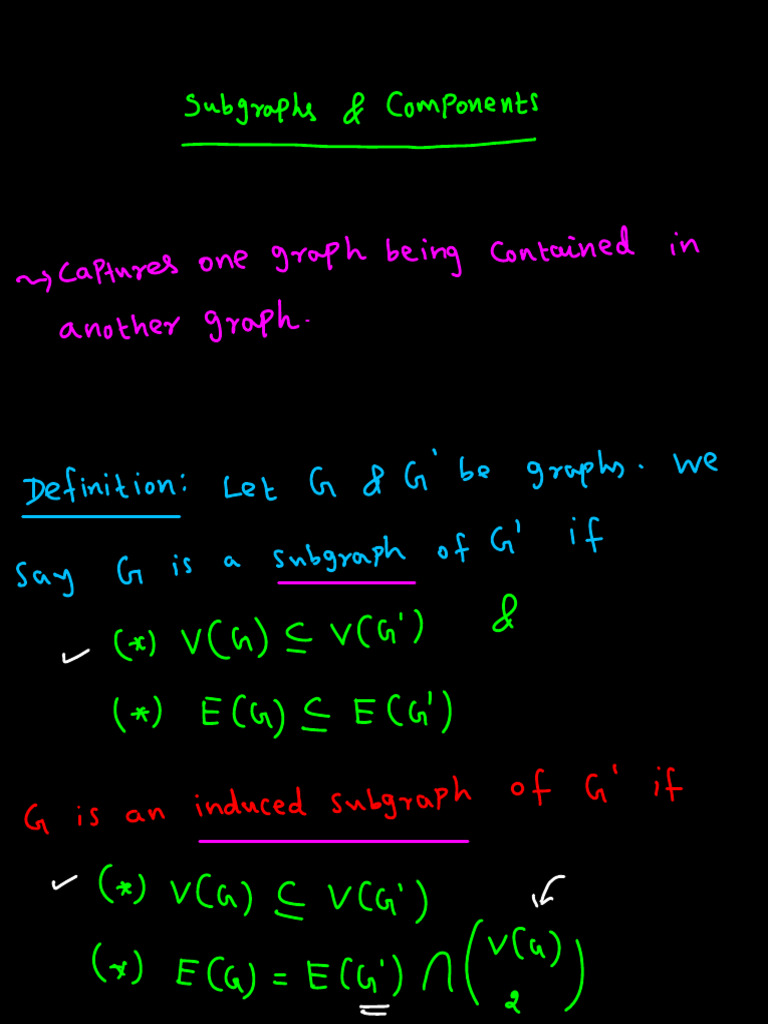 Subgraphs & Components
⇝ Captures one graph being contained in
another graph.
Definition: Let G & G' be graphs. We
say G is a subgraph of G' if
✓ (*) V(G) ⊆ V(G') &
(*) E(G) ⊆ E(G')
G is an induced subgraph of G' if
✓ (*) V(G) ⊆ V(G')
(*) E(G) = E(G') ∩ (V(G) 2)